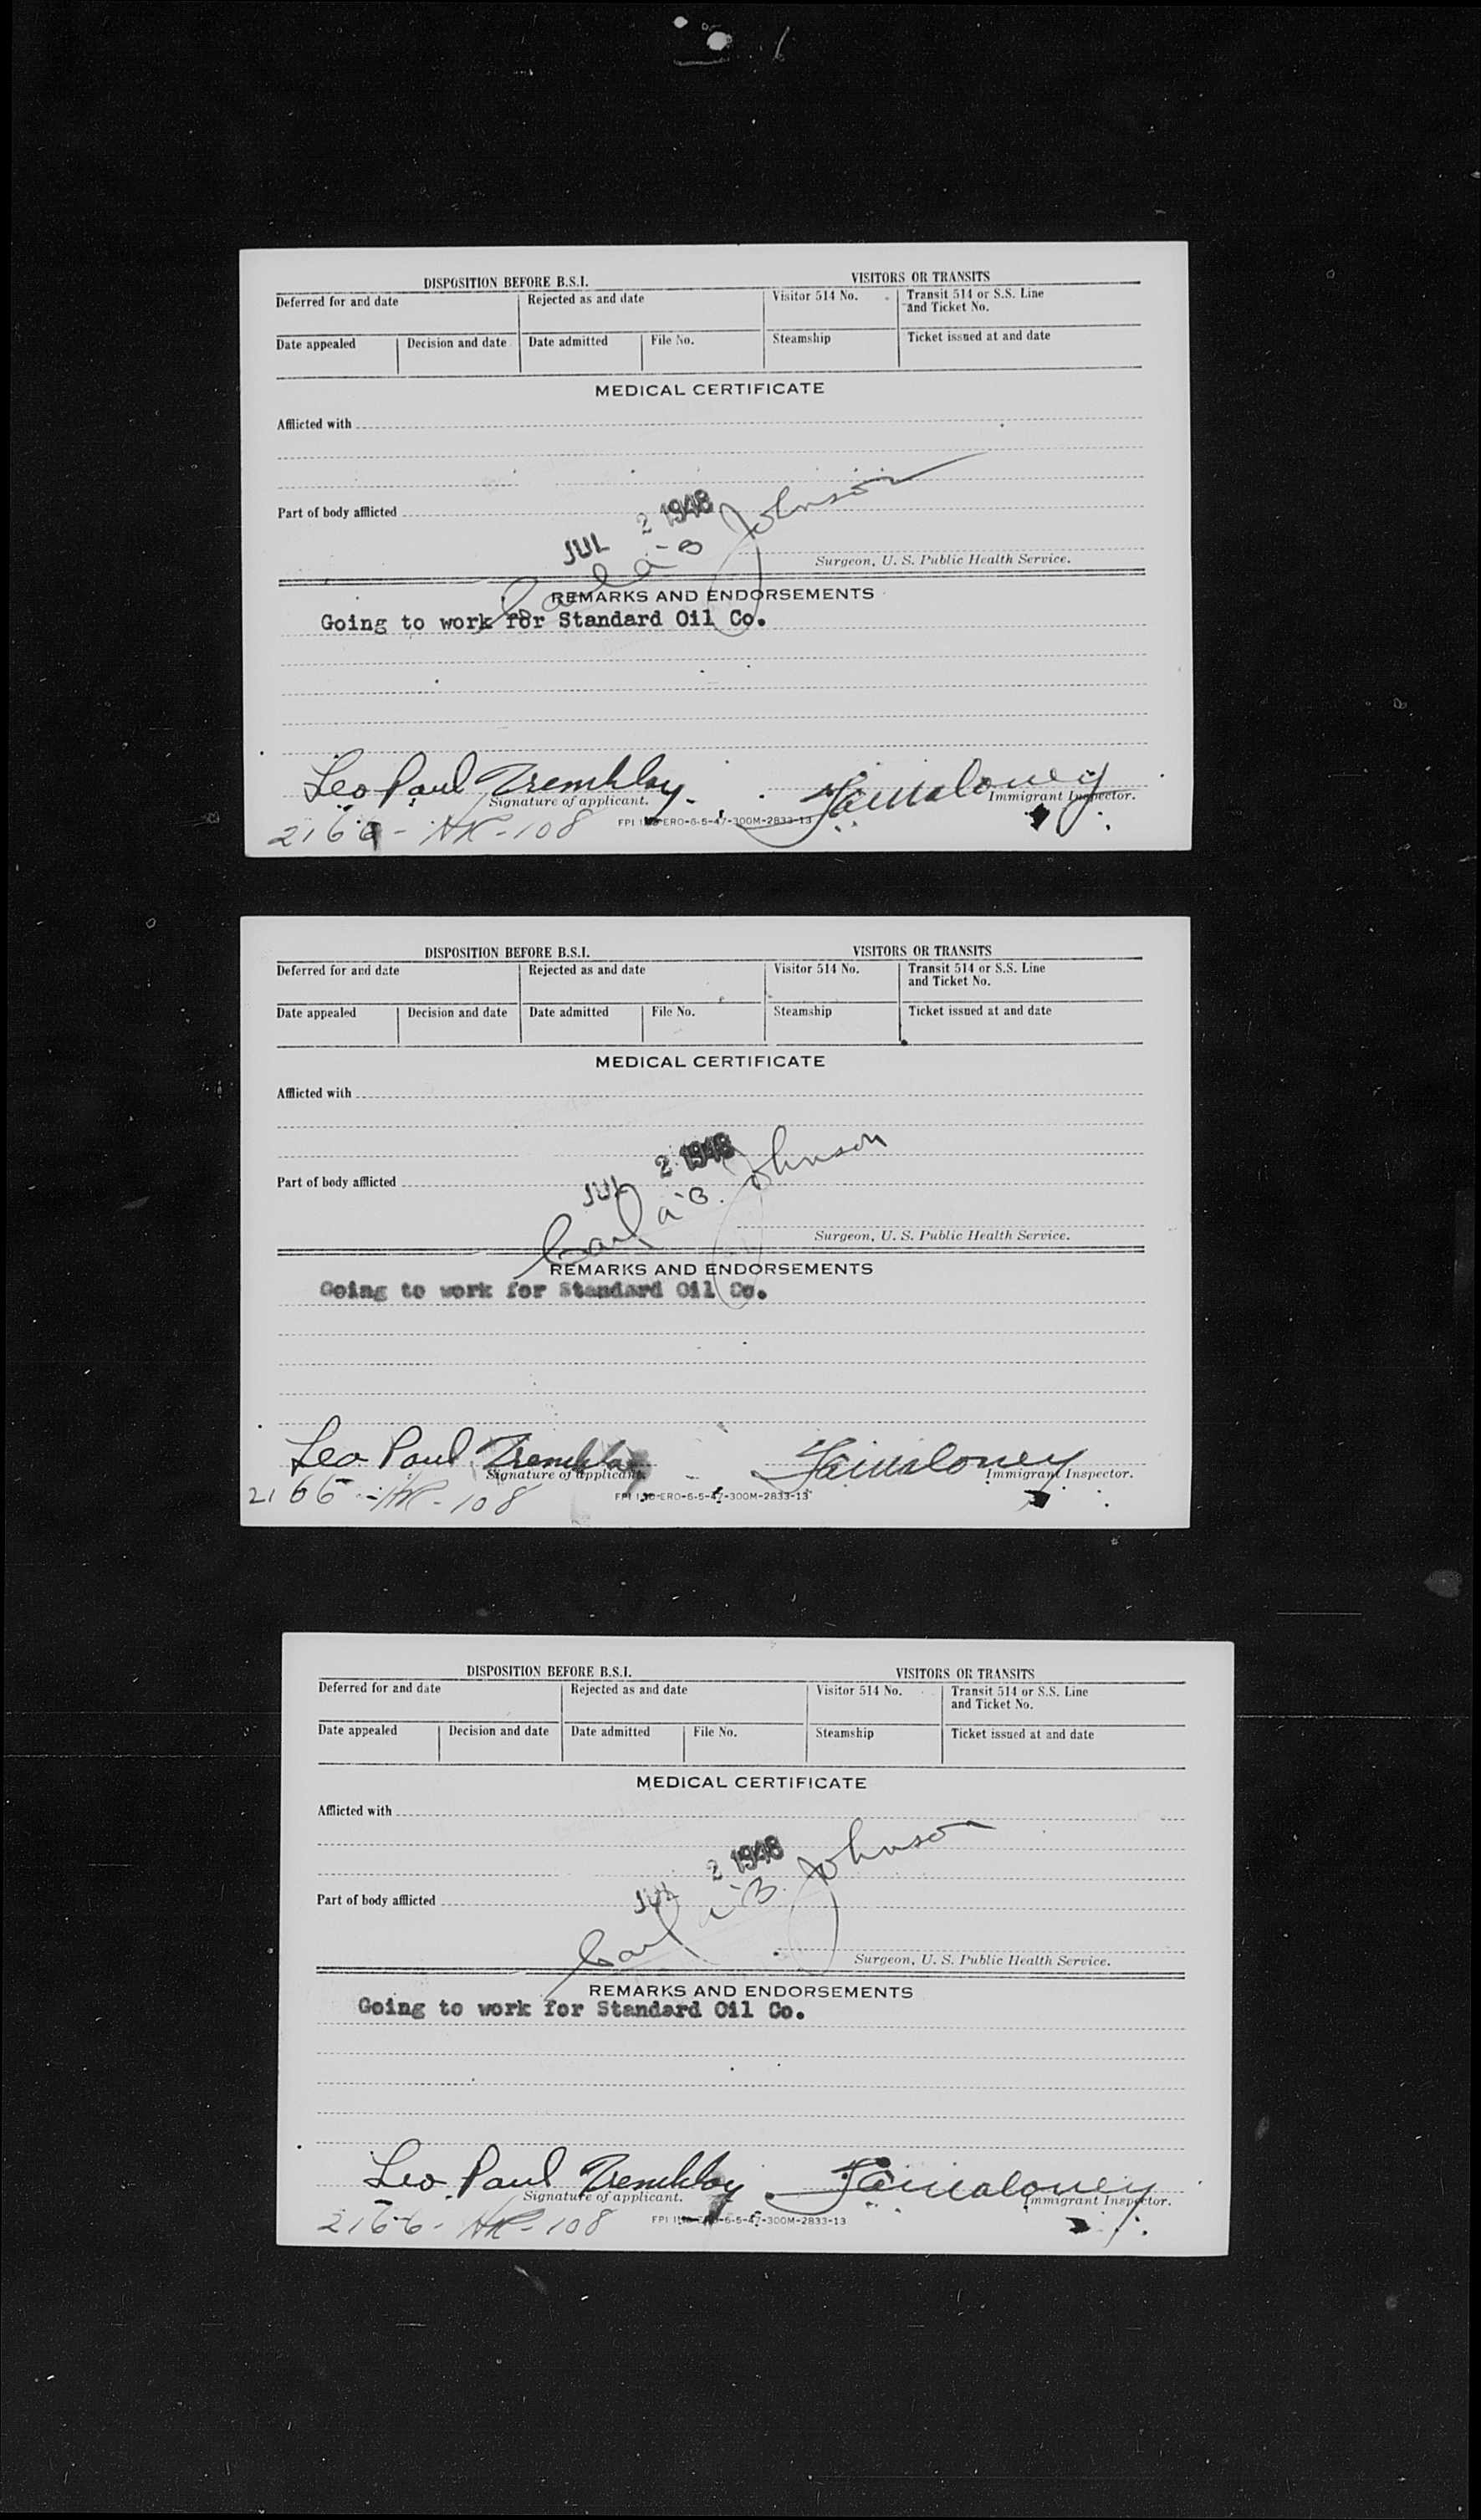 DISPOSITION BEFORE B.S.I. VISITORS OR TRANSITS
Deferred for and date Rejected as and date Visitor 514 No. Transit 514 or S.S. Line
and Ticket No.
Date appealed Decision and date Date admitted File No. Steamship Ticket issued at and date
MEDICAL CERTIFICATE
Afflicted with
Part of body afflicted
JUL 2 1948
Carl A. B. Johnson
Surgeon, U. S. Public Health Service.
REMARKS AND ENDORSEMENTS
Going to work for Standard Oil Co.
Leo Paul Tremblay
Signature of applicant. Immigrant Inspector.
2166 - - 108 ERO-6-5-47-300M-2833-13
DISPOSITION BEFORE B.S.I. VISITORS OR TRANSITS
Deferred for and date Rejected as and date Visitor 514 No. Transit 514 or S.S. Line
and Ticket No.
Date appealed Decision and date Date admitted File No. Steamship Ticket issued at and date
MEDICAL CERTIFICATE
Afflicted with
Part of body afflicted
JUL 2 1948
Carl A. B. Johnson
Surgeon, U. S. Public Health Service.
REMARKS AND ENDORSEMENTS
Going to work for Standard Oil Co.
Leo Paul Tremblay
Signature of applicant. Immigrant Inspector.
2166 - - 108 ERO-6-5-47-300M-2833-13
DISPOSITION BEFORE B.S.I. VISITORS OR TRANSITS
Deferred for and date Rejected as and date Visitor 514 No. Transit 514 or S.S. Line
and Ticket No.
Date appealed Decision and date Date admitted File No. Steamship Ticket issued at and date
MEDICAL CERTIFICATE
Afflicted with
Part of body afflicted
JUL 2 1948
Carl A. B. Johnson
Surgeon, U. S. Public Health Service.
REMARKS AND ENDORSEMENTS
Going to work for Standard Oil Co.
Leo Paul Tremblay
Signature of applicant. Immigrant Inspector.
2166 - - 108 6-5-47-300M-2833-13